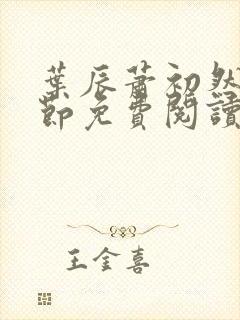 葉辰蕭初然
節免費閱讀
王金喜